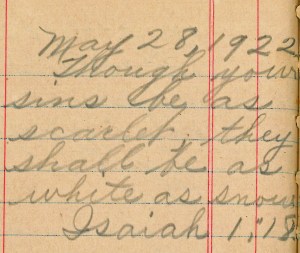 May 28, 1922
Though your
sins be as
scarlet, they
shall be as
white as snow
Isaiah 1:18